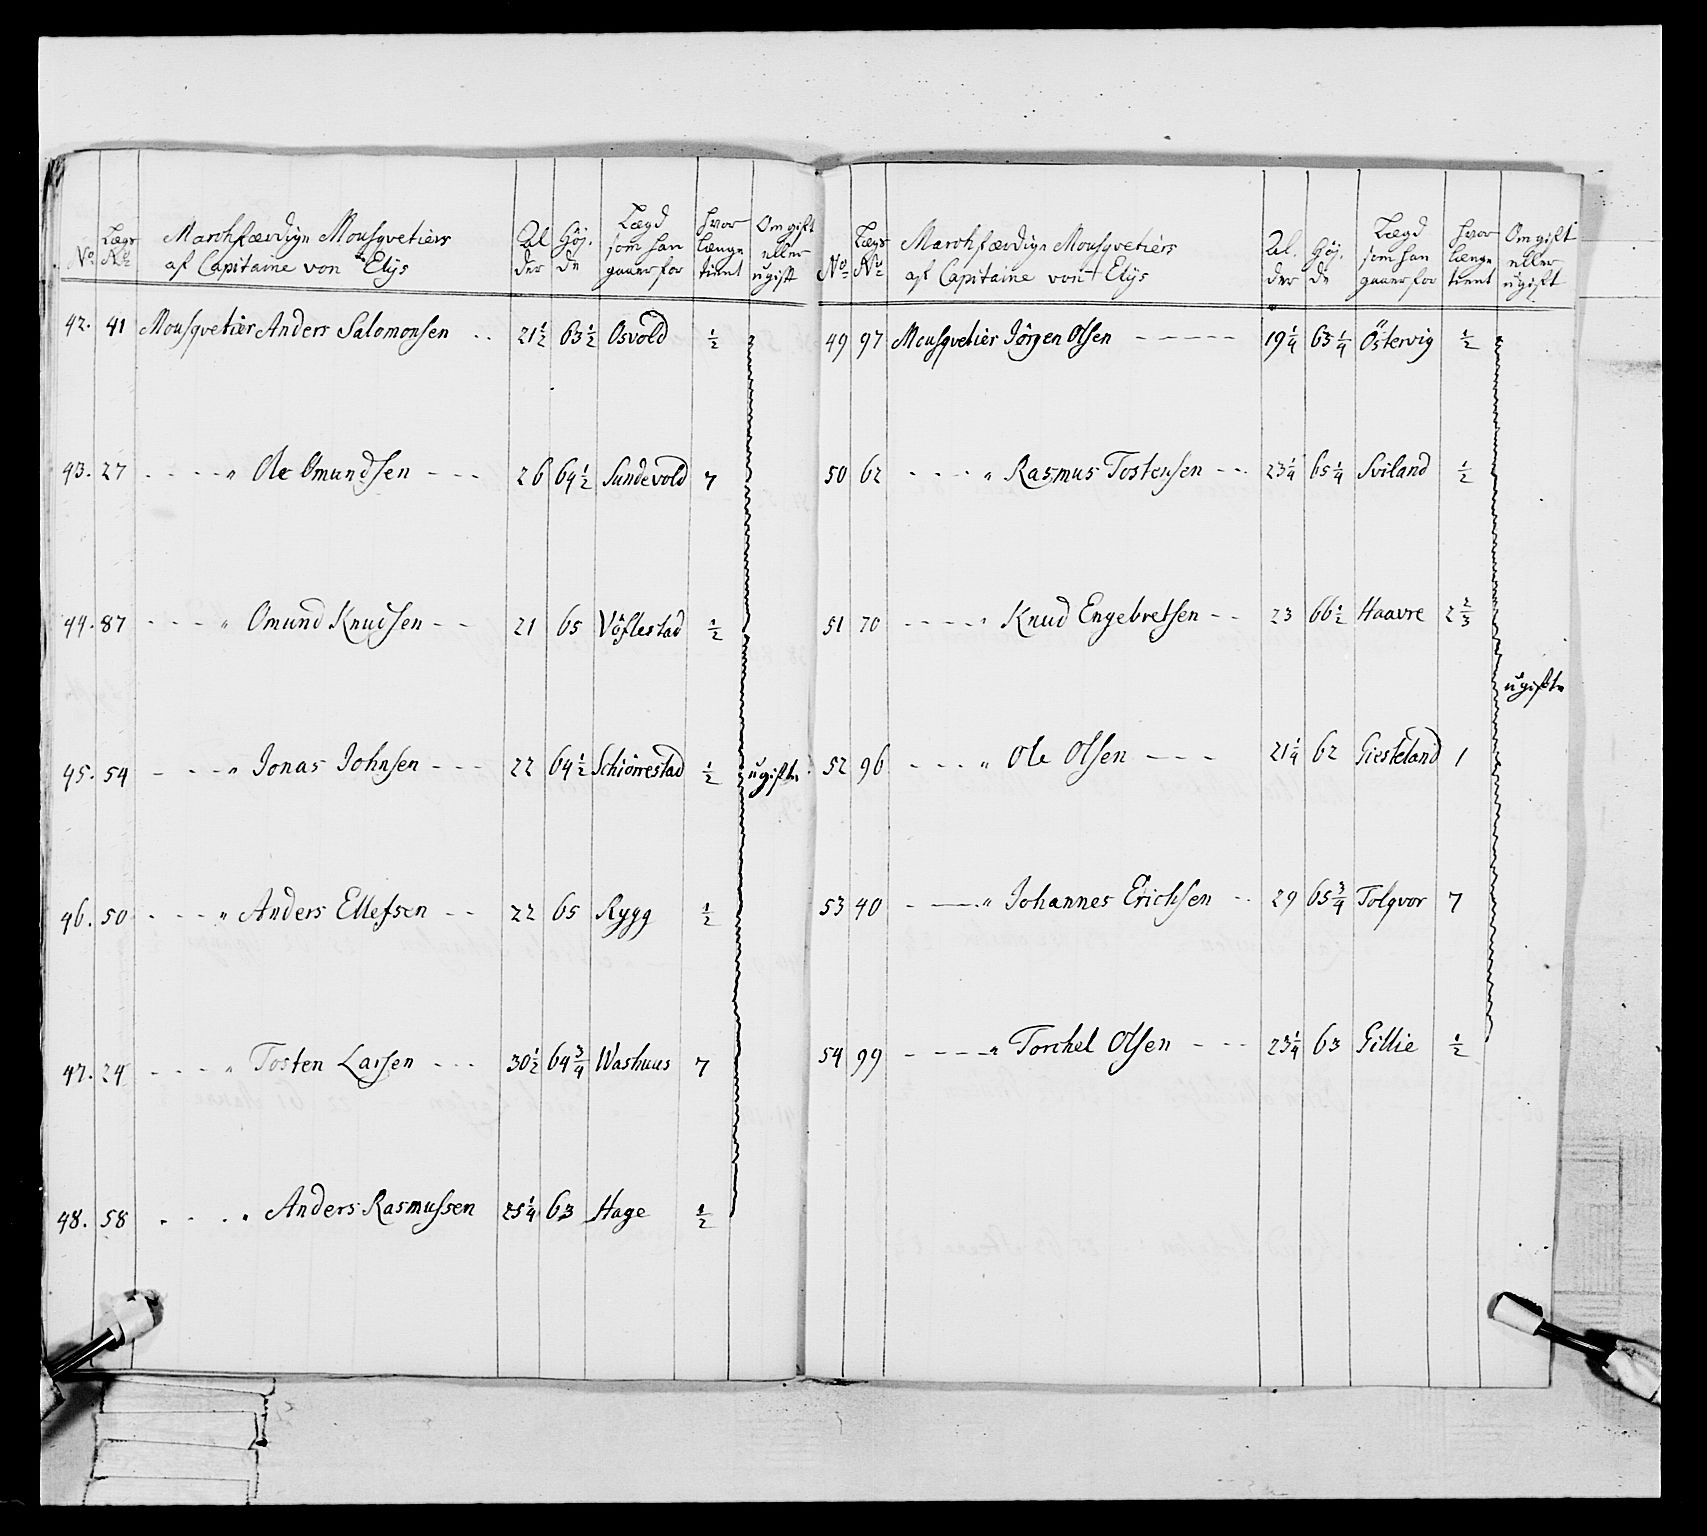 No. Lægs No. Marchfærdige Mousqvetiers af Capitaine von Elijs Alder Höjde Lægd som han gaaer for hvor længe tient Om gift eller ugift
42. 41 Mousqvetier Anders Salomonsen .. 21½ 63½ Osvold ½
43. 27 - - - - " Ole Omundsen - - - 26 64½ Sundevold 7
44. 87 - - - - " Omund Knudsen - - 21 65 Vöflestad ½
45. 54 - - - - " Jonas Johnsen - - - 22 64½ Schiorrestad ½ ugifte
46. 50 - - - - " Anders Ellefsen - - 22 65 Rygg ½
47. 24 - - - - " Tosten Larsen - - - 30½ 64¾ Washuus 7
48. 58 - - - " Anders Rasmussen 25¼ 63 Hage ½
No. Lægs No. Marchfærdige Mousqvetiers af Capitaine von Elijs Alder Höjde Lægd som han gaaer for hvor længe tient Om gift eller ugift
49 97 Mousqvetier Jörgen Olsen - - - - - 19¼ 63¼ Östervig ½
50 62 - - - - " Rasmus Tostensen - - - 23¼ 65¼ Sviland ½
51 70 - - - - " Knud Engebretsen - - 23 66½ Haavre 2⅔
ugifte
52 96 - - - - " Ole Olsen - - - 21¼ 62 Giesteland 1
53 40 - - - - " Johannes Erichsen - - 29 65¾ Tolgvor 7
54 99 - - - - " Torchel Olsen - - - 23¼ 63 Gillie ½